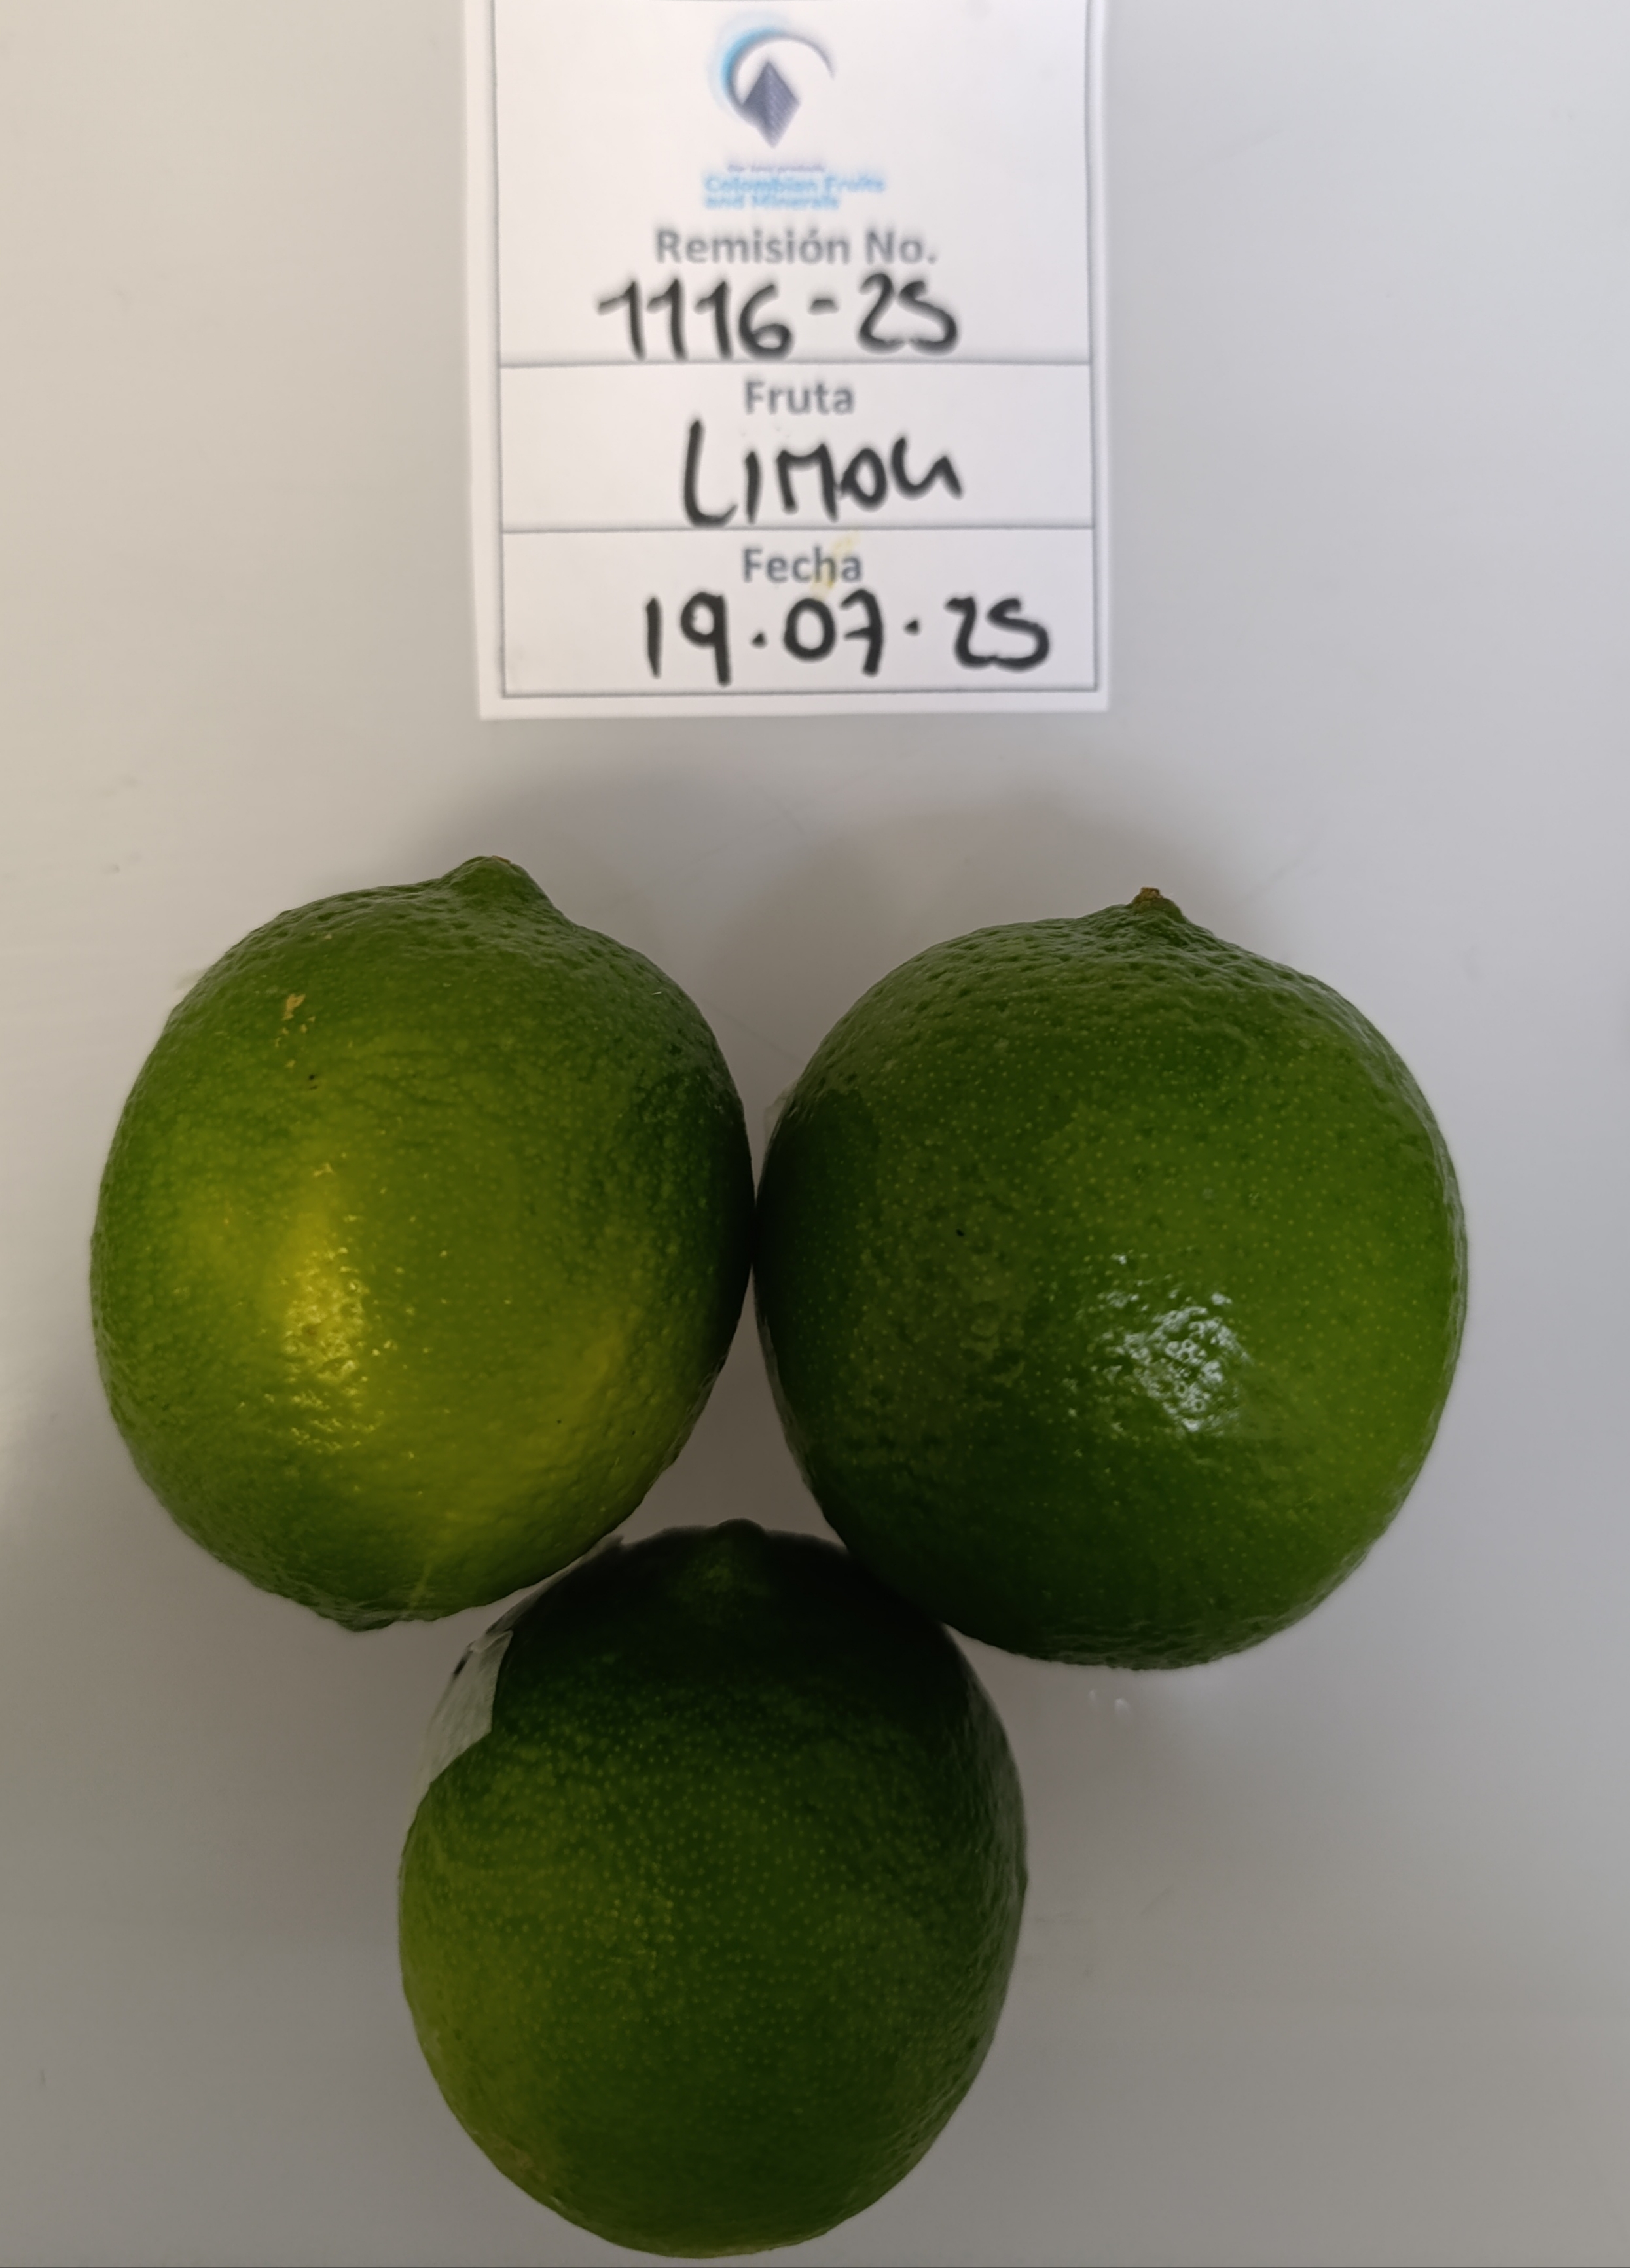 Colombian Fruits
and Minerals
Remisión No.
1116-25
Fruta
LIMON
Fecha
19.07.25